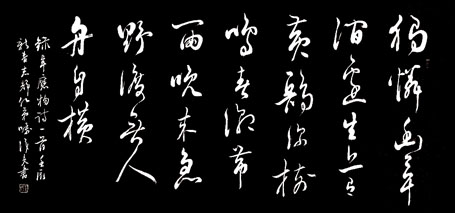 獨憐幽草
澗邊生上有
黃鸝深樹
鳴春潮帶
雨晚來急
野渡無人
舟自橫
録韋應物詩一首壬辰
新春書